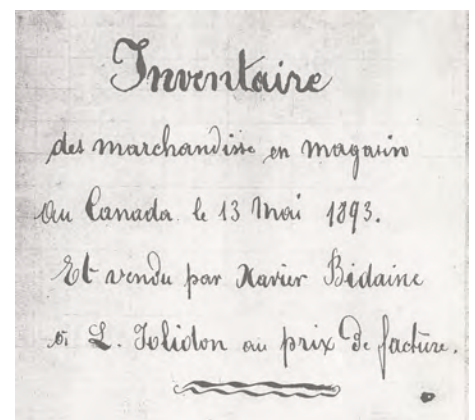 Inventaire
des marchandise en magasin
Au Canada le 13 Mai 1893.
Et vendu par Xavier Bidaine
à L. Jolidon au prix de facture.